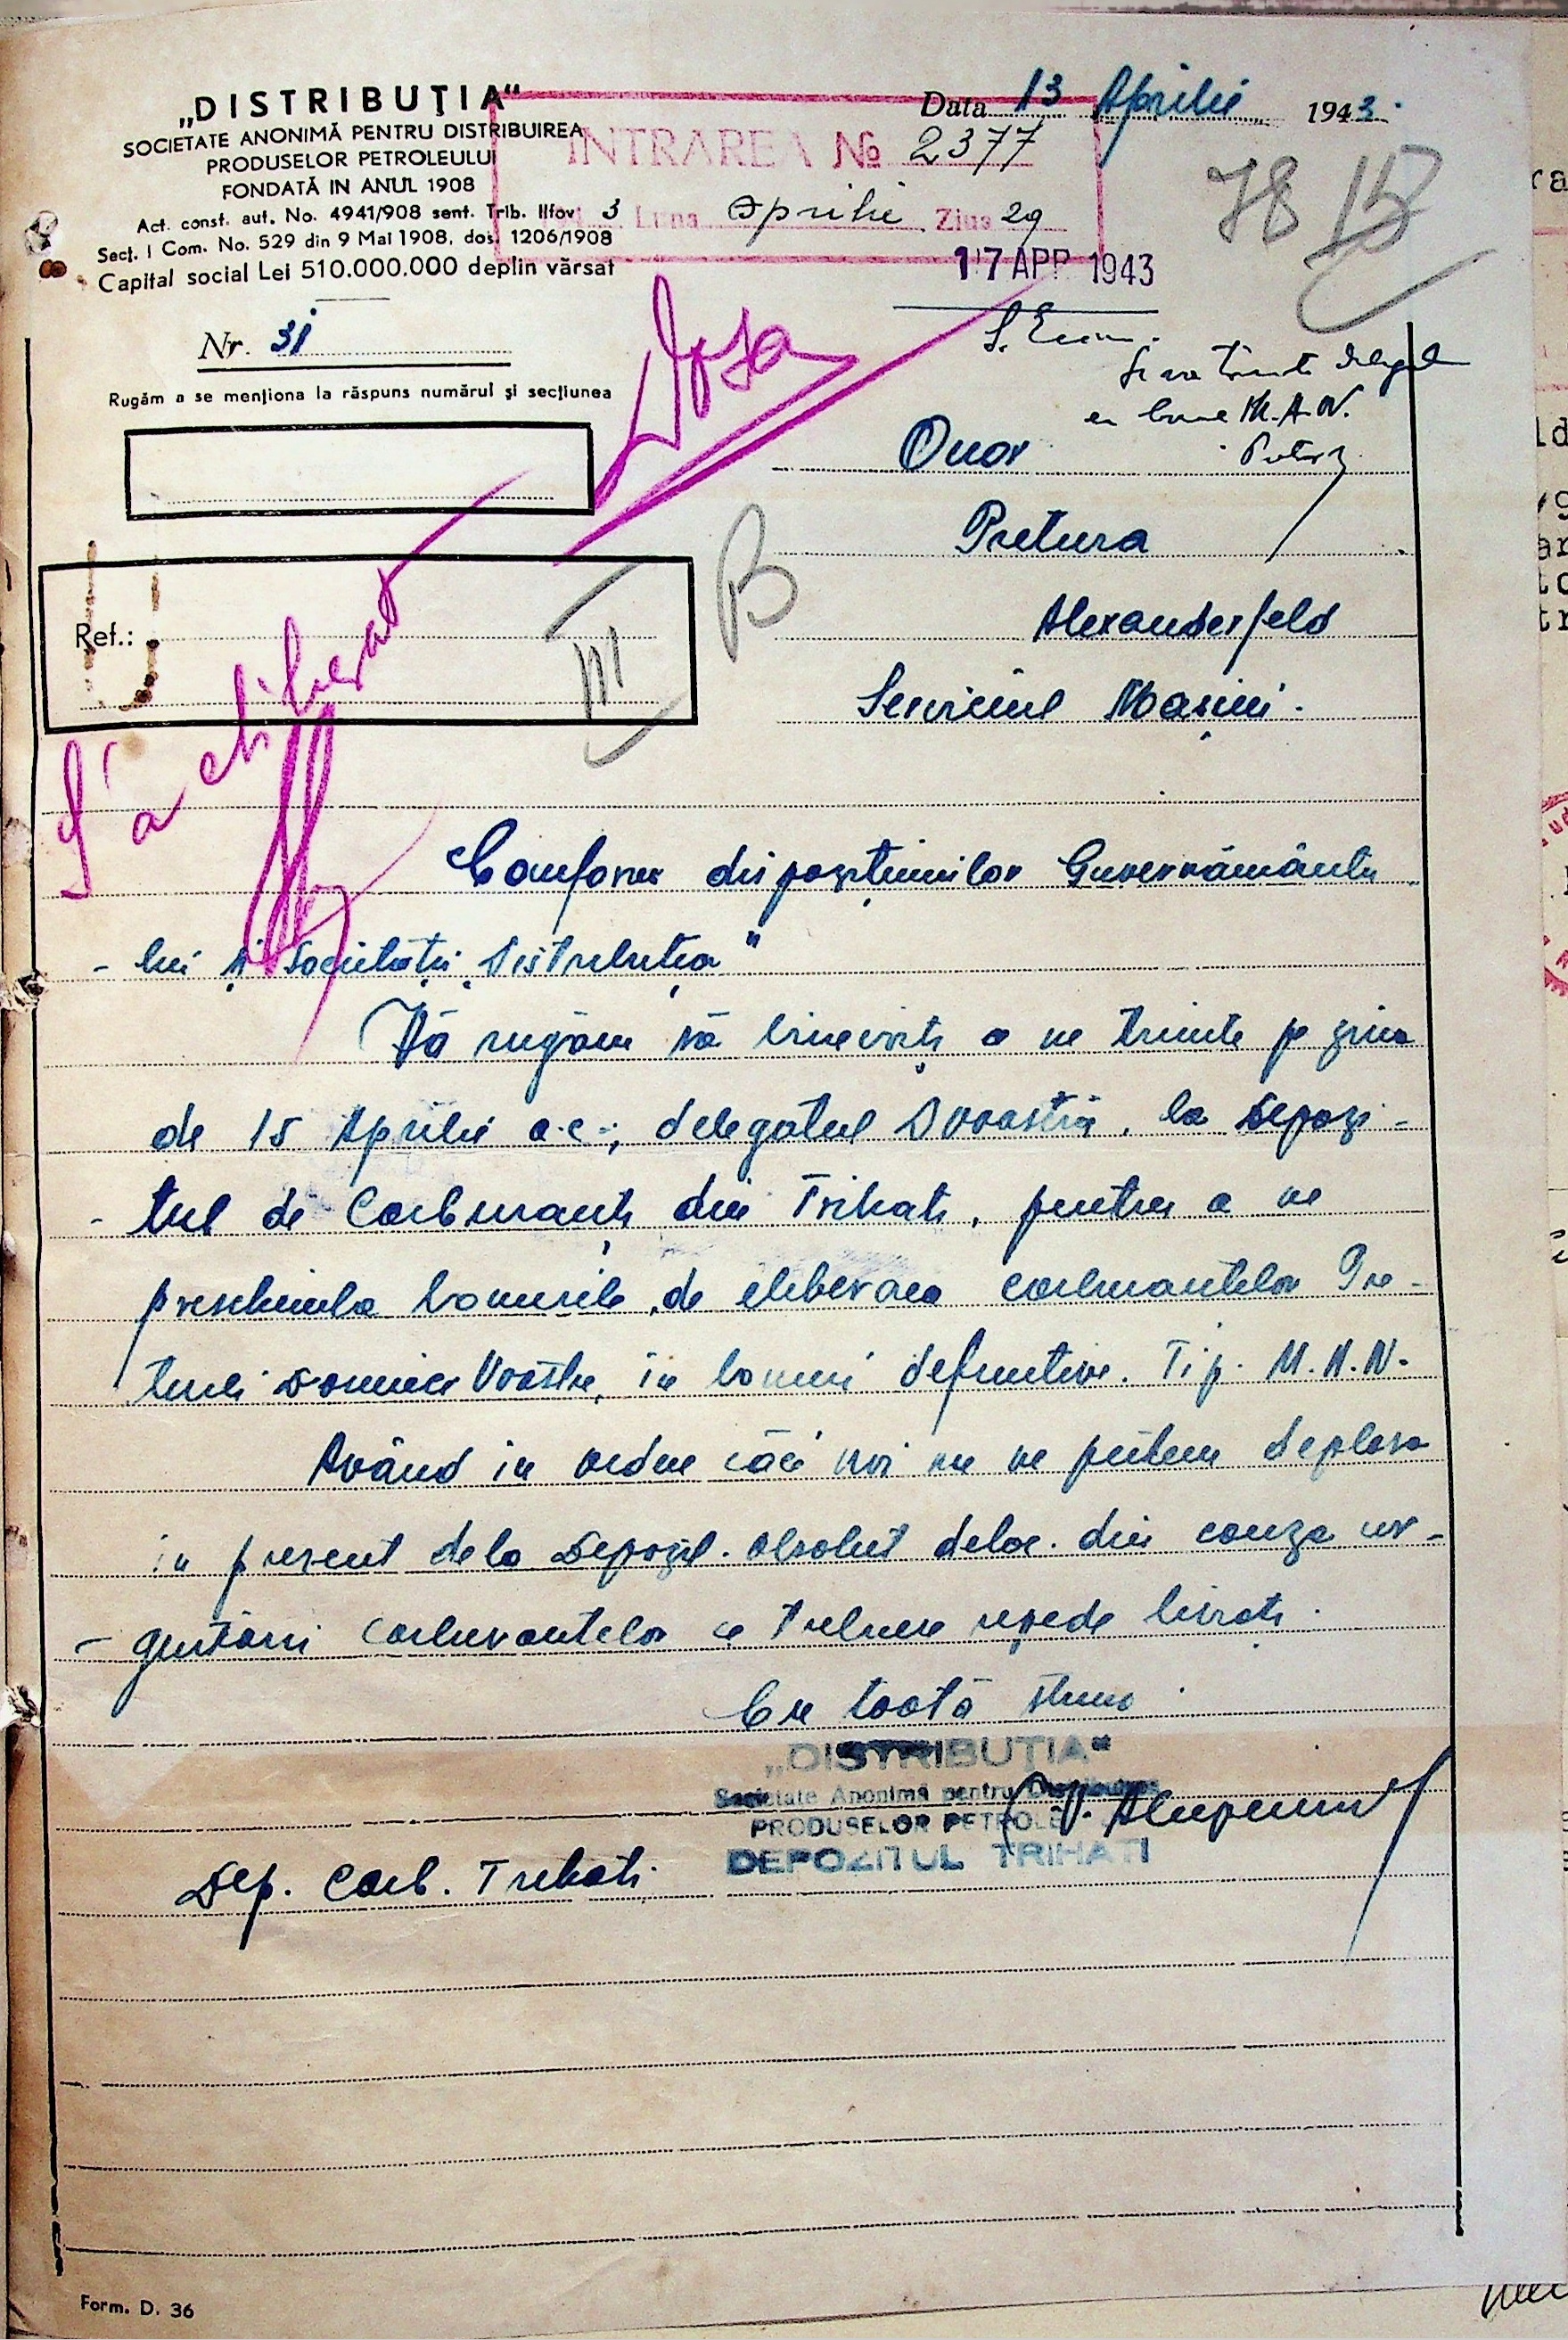 „DISTRIBUŢIA“
SOCIETATE ANONIMĂ PENTRU DISTRIBUIREA
PRODUSELOR PETROLEULUI
FONDATĂ IN ANUL 1908
Act. const. aut. No. 4941/908 sent. Trib. Ilfov
Secţ. I Com. No. 529 din 9 Mai 1908, dos. 1206/1908
Capital social Lei 510.000.000 deplin vărsat
Data 13 Aprilie 1943.
INTRAREA № 2377
3 Luna Aprilie Ziua 29
17 APR 1943
78 15
Nr. 31
Rugăm a se menţiona la răspuns numărul şi secţiunea
Dosa
Se va trimite
cu M.A.N.
Onor
Pretura
Alexanderfeld
Serviciul Maşini.
Ref.:
III
B
S'a eliberat
Conform dispoziţiunilor Guvernământu
- lui şi Societăţii Distribuţia"
Vă rugăm să binevoiţi a ne trimite pe ziua
de 15 Aprilie a.c., delegatul Dvoastră, la Depozi-
- tul de Carburanţi din Trihati, pentru a ne
preschimba bonurile de eliberarea carburantelor Pre-
turei Domniei Voastre, in bonuri definitive. Tip. M.A.N.
Având in vedere căci noi nu ne putem deplasa
in prezent dela Depozit. absolut deloc. din cauza ur-
- gentării carburantelor ce trebuesc repede livraţi.
Cu toată stima
„DISTRIBUŢIA“
Societate Anonimă pentru Distribuirea
PRODUSELOR PETROLE
DEPOZITUL TRIHATI
Dep. Carb. Trihati
Form. D. 36